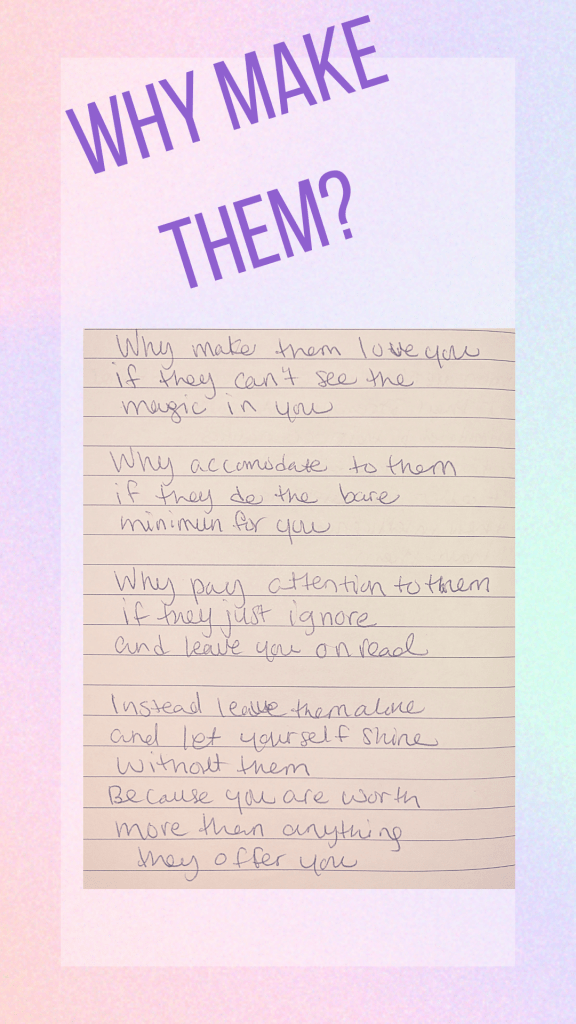 WHY MAKE
THEM?
Why make them love you
if they can't see the
magic in you
Why accomodate to them
if they do the bare
minimun for you
Why pay attention to them
if they just ignore
and leave you on read
Instead leave them alone
and let yourself shine
without them
Because you are worth
more than anything
they offer you